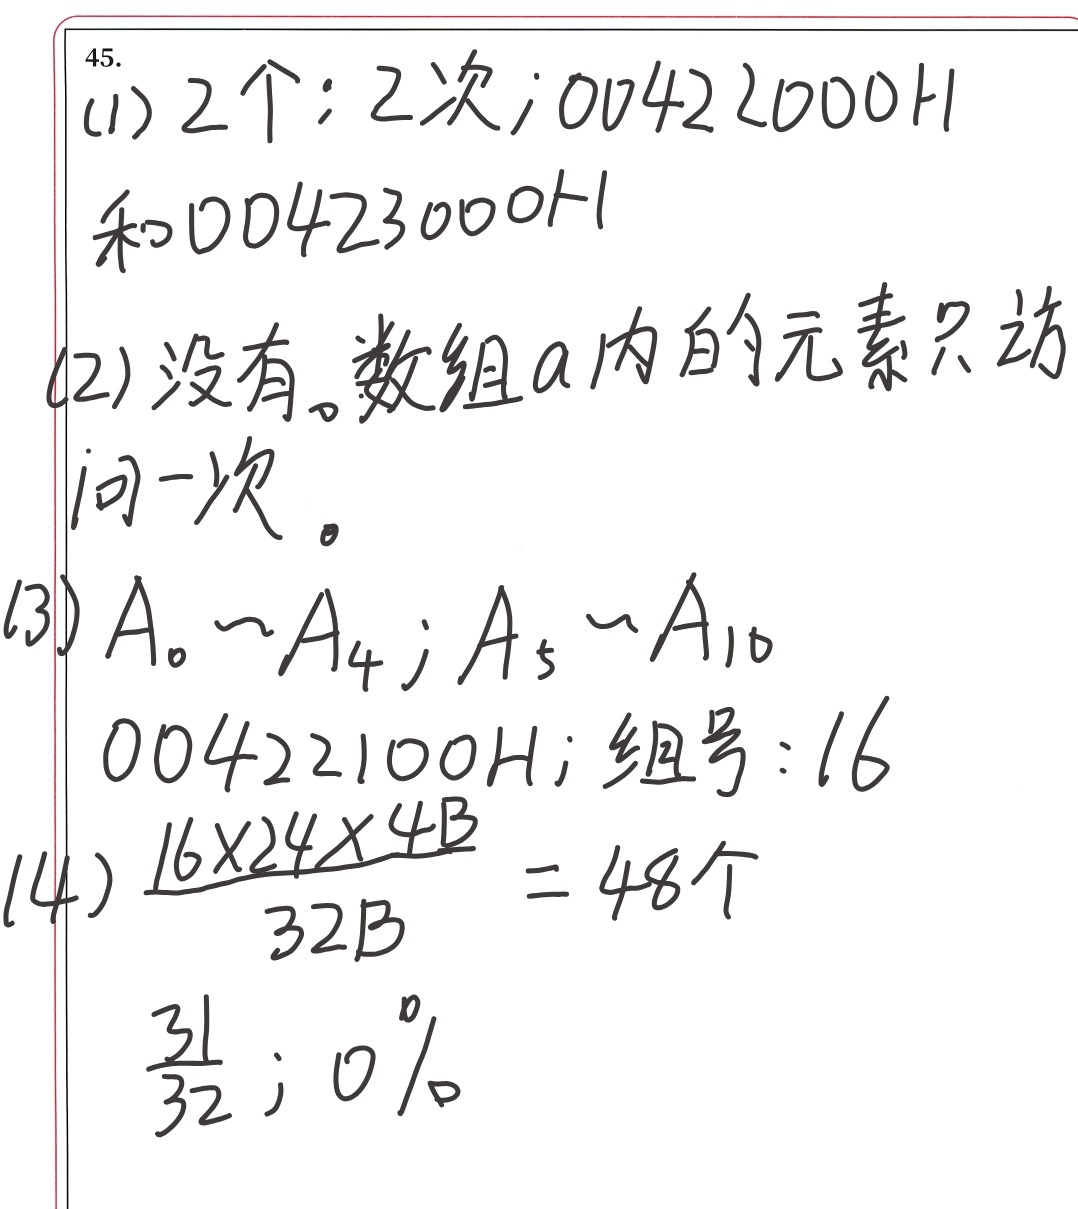 45.
(1) 2个; 2次; 00422000H
和00423000H
(2) 没有。数组a内的元素只访
问一次。
(3) A₀~A₄; A₅~A₁₀
00422100H; 组号:16
(4) 16×24×4B/32B = 48个
31/32; 0%